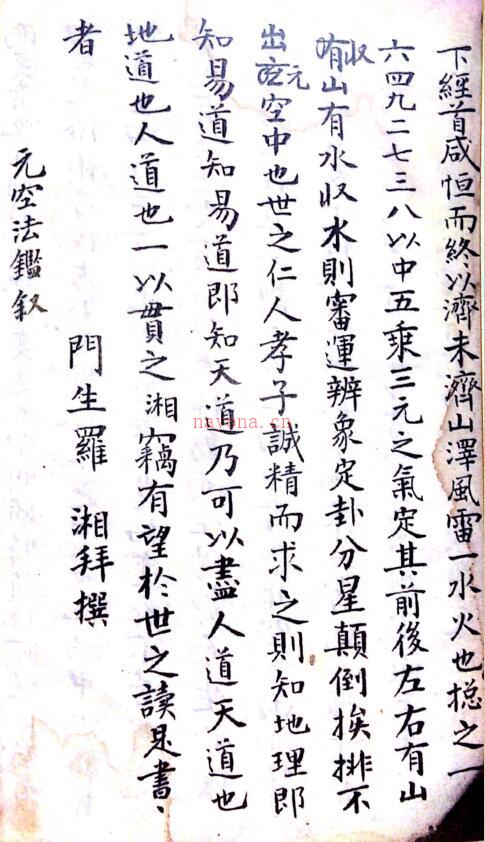 下經首咸恒而終以濟未濟山澤風雷一水火也揔之一
六四九二七三八以中五乘三元之氣定其前後左右有山
收山有水收水則審運辨象定卦分星顛倒挨排不
出元空中也世之仁人孝子誠精而求之則知地理即
知易道知易道即知天道乃可以盡人道天道也
地道也人道也一以貫之湘竊有望於世之讀是書、
者
門生羅湘拜撰
元空法鑑叙
nayona.cn